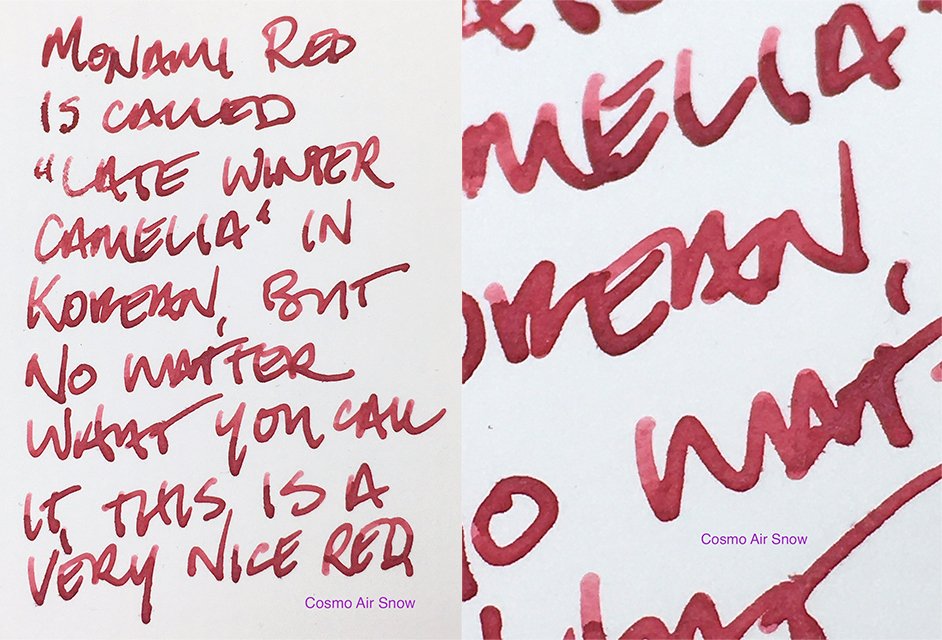 MONAMI RED
IS CALLED
"LATE WINTER
CAMELIA" IN
KOREAN, BUT
NO MATTER
WHAT YOU CALL
IT, THIS IS A
VERY NICE RED
Cosmo Air Snow
AMELIA"
OREAN,
O MAT
Cosmo Air Snow